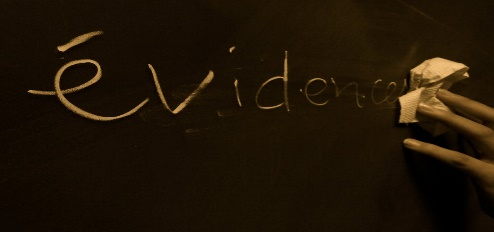 évidence